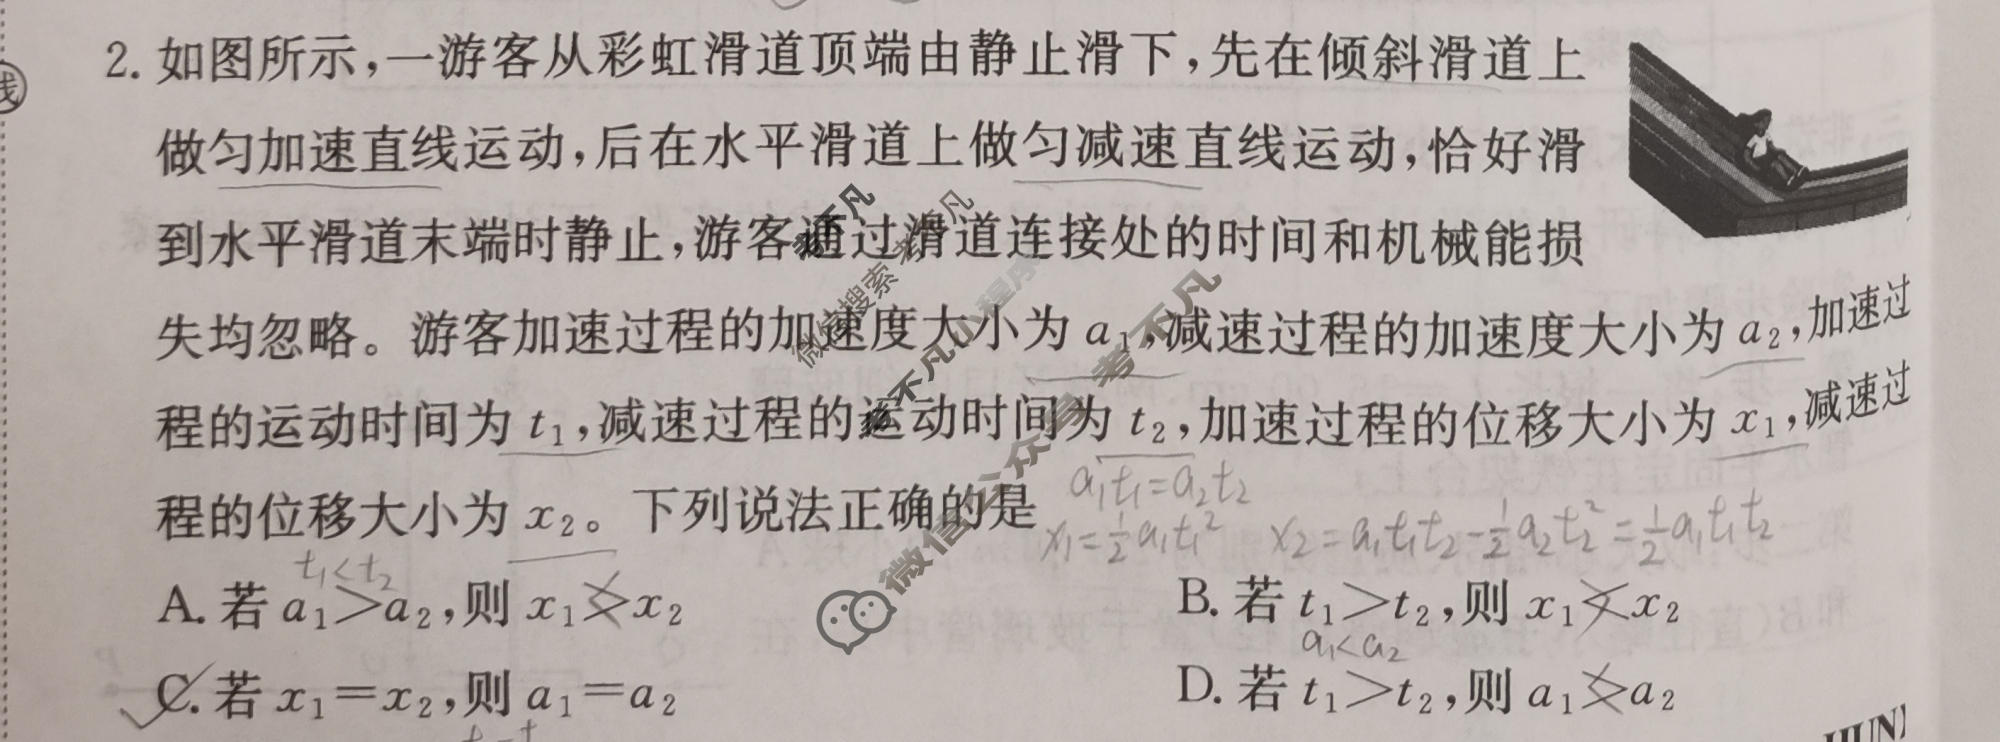 线
2. 如图所示,一游客从彩虹滑道顶端由静止滑下,先在倾斜滑道上
做匀加速直线运动,后在水平滑道上做匀减速直线运动,恰好滑
到水平滑道末端时静止,游客通过滑道连接处的时间和机械能损
失均忽略。游客加速过程的加速度大小为 a₁,减速过程的加速度大小为 a₂,加速过
程的运动时间为 t₁,减速过程的运动时间为 t₂,加速过程的位移大小为 x₁,减速过
程的位移大小为 x₂。下列说法正确的是
a₁t₁=a₂t₂
x₁=½a₁t₁² x₂=a₁t₁t₂-½a₂t₂²=½a₁t₁t₂
t₁<t₂
A. 若 a₁>a₂,则 x₁>x₂
B. 若 t₁>t₂,则 x₁<x₂
a₁<a₂
C. 若 x₁=x₂,则 a₁=a₂
D. 若 t₁>t₂,则 a₁>a₂
微信搜索 考不凡
考不凡小程序
微信公众号 考不凡